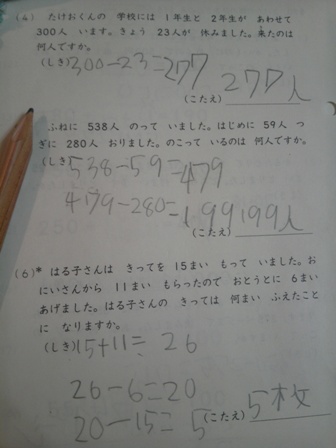 (4) たけおくんの 学校には 1年生と 2年生が あわせて
300人 います。きょう 23人が 休みました。来たのは
何人ですか。
(しき) 300-23=277
(こたえ) 277人
ふねに 538人 のって いました。はじめに 59人 つ
ぎに 280人 おりました。のこって いるのは 何人ですか。
(しき 538-59=479
479-280=199
(こたえ) 199人
(6)* はる子さんは きってを 15まい もって いました。お
にいさんから 11まい もらったので おとうとに 6まい
あげました。はる子さんの きっては 何まい ふえたこと
に なりますか。
(しき) 15+11= 26
26-6=20
20-15=5
(こたえ) 5枚